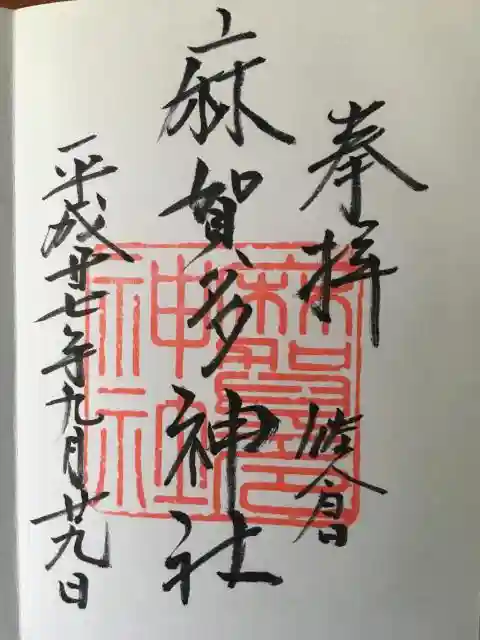 奉拝
佐倉
麻賀多神社
平成廿七年九月廿九日
麻賀多
神社